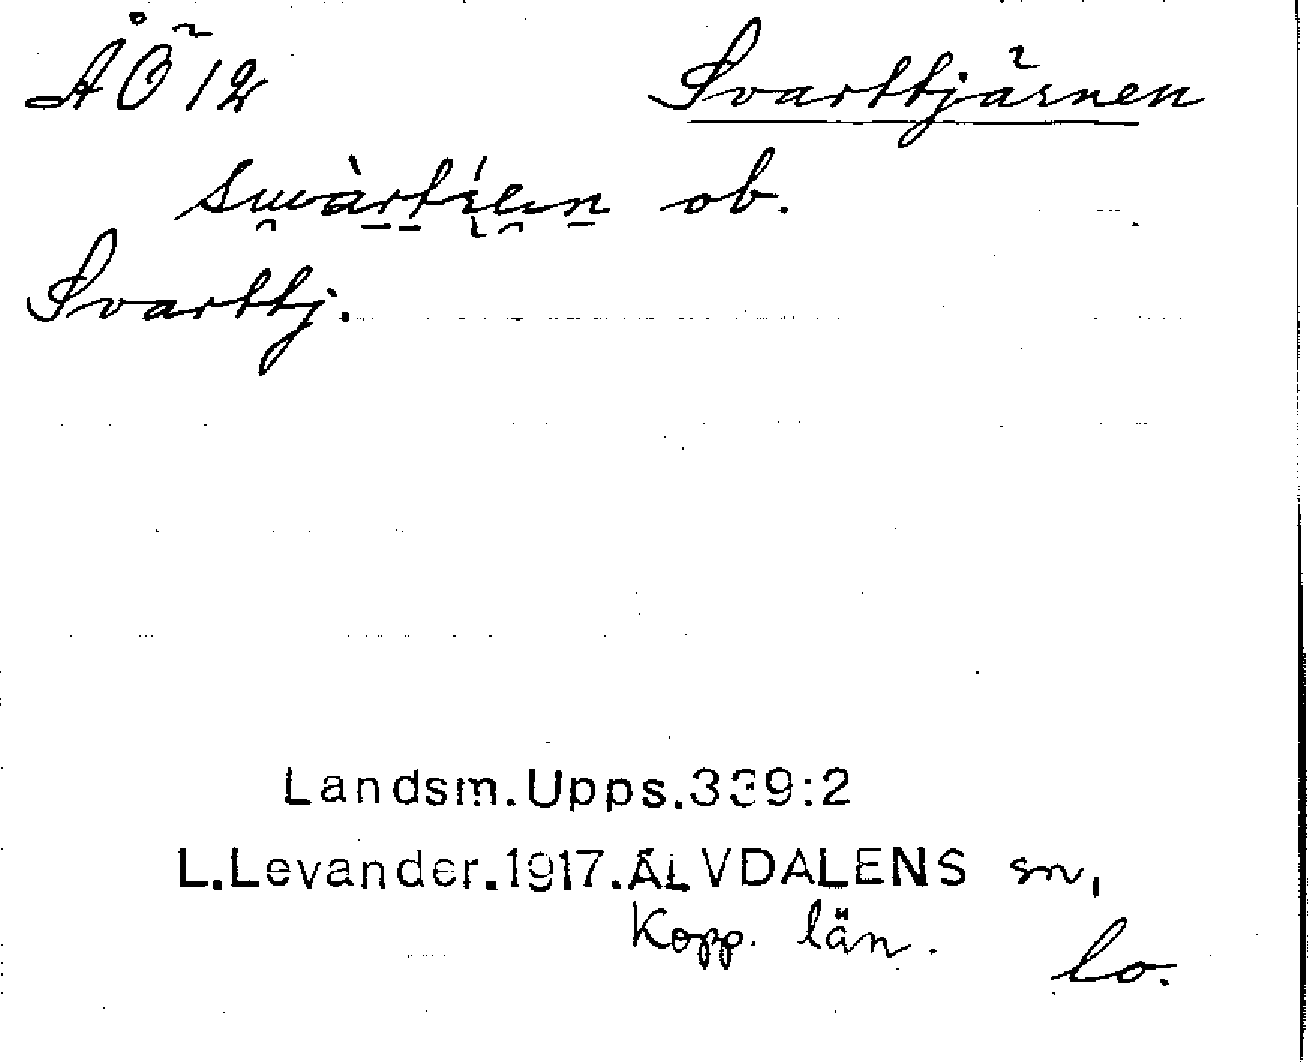 ÅÖ 12 Svarttjärnen
swàrtílen ob.
Svarttj.
Landsm.Upps.339:2
L.Levander.1917.ÄLVDALENS sn,
Kopp. län.
lo.